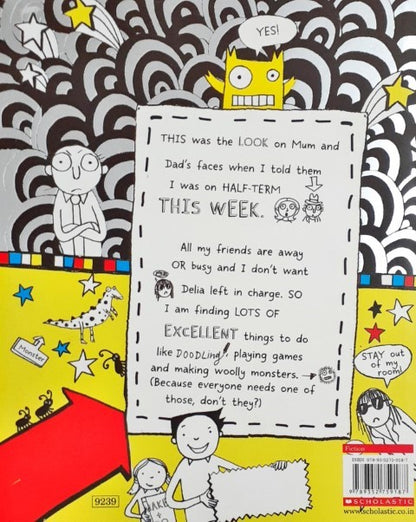 YES!
THIS was the LOOK on Mum and
Dad's faces when I told them
I was on HALF-TERM
THIS WEEK.
All my friends are away
OR busy and I don't want
Delia left in charge. SO
I am finding LOTS OF
EXCELLENT things to do
like DOODLing! playing games
and making woolly monsters.
(Because everyone needs one of
those, don't they?)
Monster
STAY out
of my
room!
9239
MAKE
Fiction
SCHOLASTIC
www.scholastic.co.in